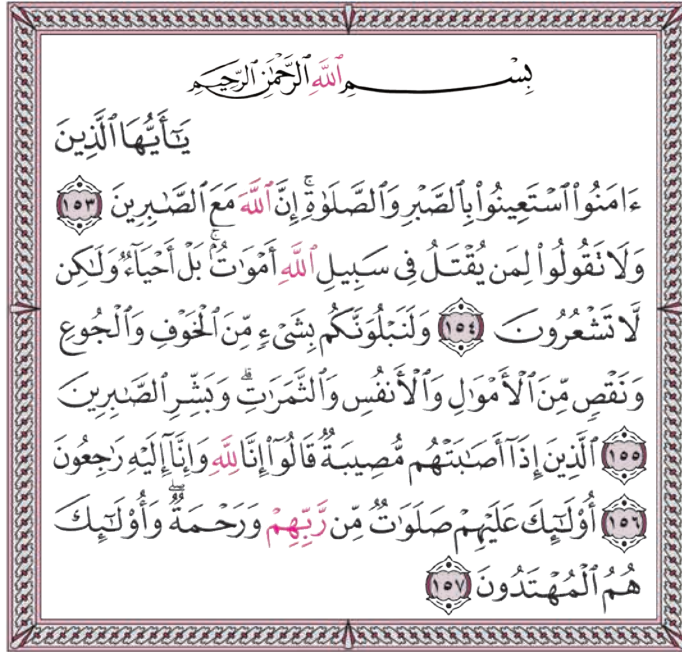 بِسْمِ ٱللَّهِ ٱلرَّحْمَٰنِ ٱلرَّحِيمِ
يَٰٓأَيُّهَا ٱلَّذِينَ
ءَامَنُوا۟ ٱسْتَعِينُوا۟ بِٱلصَّبْرِ وَٱلصَّلَوٰةِ ۚ إِنَّ ٱللَّهَ مَعَ ٱلصَّٰبِرِينَ ١٥٣
وَلَا تَقُولُوا۟ لِمَن يُقْتَلُ فِى سَبِيلِ ٱللَّهِ أَمْوَٰتٌۢ ۚ بَلْ أَحْيَآءٌ وَلَٰكِن
لَّا تَشْعُرُونَ ١٥٤ وَلَنَبْلُوَنَّكُم بِشَىْءٍ مِّنَ ٱلْخَوْفِ وَٱلْجُوعِ
وَنَقْصٍ مِّنَ ٱلْأَمْوَٰلِ وَٱلْأَنفُسِ وَٱلثَّمَرَٰتِ ۗ وَبَشِّرِ ٱلصَّٰبِرِينَ
١٥٥ ٱلَّذِينَ إِذَآ أَصَٰبَتْهُم مُّصِيبَةٌ قَالُوٓا۟ إِنَّا لِلَّهِ وَإِنَّآ إِلَيْهِ رَٰجِعُونَ
١٥٦ أُو۟لَٰٓئِكَ عَلَيْهِمْ صَلَوَٰتٌ مِّن رَّبِّهِمْ وَرَحْمَةٌ ۖ وَأُو۟لَٰٓئِكَ
هُمُ ٱلْمُهْتَدُونَ ١٥٧